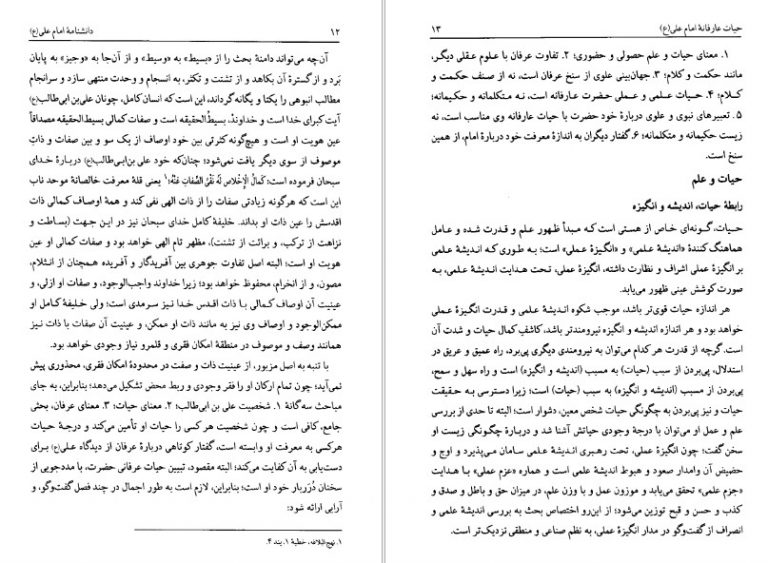 ۱۲ دانشنامهٔ امام علی(ع)
آن‌چه می‌تواند دامنهٔ بحث را از «بسیط» به «وسیط» و از آن‌جا به «وجیز» به پایان
بَرد و از گسترهٔ آن بکاهد و از تشتت و تکثر، به انسجام و وحدت منتهی سازد و سرانجام
مطالب انبوهی را یکتا و یگانه گرداند، این است که انسان کامل، چونان علی‌بن‌ابی‌طالب(ع)
آیت کبرای خدا است و خداوند، بسیط‌الحقیقه است و صفات کمالی بسیط‌الحقیقه مصداقاً
عین هویت او است و هیچ‌گونه کثرتی بین خود اوصاف از یک سو و بین صفات و ذاتِ
موصوف از سوی دیگر یافت نمی‌شود؛ چنان‌که خود علی بن‌ابی‌طالب(ع) دربارهٔ خدای
سبحان فرموده است: کَمالُ الْإخْلاصِ لَهُ نَفْیُ الصِّفاتِ عَنْهُ؛۱ یعنی قلهٔ معرفت خالصانهٔ موحد ناب
این است که هرگونه زیادتی صفات را از ذات الهی نفی کند و همهٔ اوصاف کمالی ذات
اقدسش را عین ذات او بداند. خلیفهٔ کامل خدای سبحان نیز در این جهت (بساطت و
نزاهت از ترکب، و برائت از تشتت)، مظهر تام الهی خواهد بود و صفات کمالی او عین
هویت او است؛ البته اصل تفاوت جوهری بین آفریدگار و آفریده همچنان از انثلام،
مصون، و از انخرام، محفوظ خواهد بود؛ زیرا خداوند واجب‌الوجود، و صفات او ازلی، و
عینیت آن اوصاف کمالی با ذات اقدس خدا نیز سرمدی است؛ ولی خلیفهٔ کامل او
ممکن‌الوجود و اوصاف وی نیز به مانند ذات او ممکن، و عینیت آن صفات با ذات نیز
همانند وصف و موصوف در منطقهٔ امکان فقری و قلمرو نیاز وجودی خواهد بود.
با تنبه به اصل مزبور، از عینیت ذات و صفت در محدودهٔ امکان فقری، محذوری پیش
نمی‌آید؛ چون تمام ارکان او را فقر وجودی و ربط محض تشکیل می‌دهد؛ بنابراین، به جای
مباحث سه گانهٔ ۱. شخصیت علی بن ابی‌طالب؛ ۲. معنای حیات؛ ۳. معنای عرفان، بحثی
جامع، کافی است و چون شخصیت هر کسی را حیات او تأمین می‌کند و درجهٔ حیات
هرکسی به معرفت او وابسته است، گفتار کوتاهی دربارهٔ عرفان از دیدگاه علی(ع) برای
دست‌یابی به آن کفایت می‌کند؛ البته مقصود، تبیین حیات عرفانی حضرت، با مددجویی از
سخنان دُرَربار خود او است؛ بنابراین، لازم است به طور اجمال در چند فصل گفت‌وگو، و
آرایی ارائه شود:
۱. نهج‌البلاغه، خطبهٔ ۱، بند ۴.
حیات عارفانهٔ امام علی(ع) ۱۳
۱. معنای حیات و علم حصولی و حضوری؛ ۲. تفاوت عرفان با علوم عقلی دیگر،
مانند حکمت و کلام؛ ۳. جهان‌بینی علوی از سنخ عرفان است، نه از صنف حکمت و
کلام؛ ۴. حیات علمی و عملی حضرت عارفانه است، نه متکلمانه و حکیمانه؛
۵. تعبیرهای نبوی و علوی دربارهٔ خود حضرت با حیات عارفانه وی مناسب است، نه
زیست حکیمانه و متکلمانه؛ ۶. گفتار دیگران به اندازهٔ معرفت خود دربارهٔ امام، از همین
سنخ است.
حیات و علم
رابطهٔ حیات، اندیشه و انگیزه
حیات، گونه‌ای خاص از هستی است که مبدأ ظهور علم و قدرت شده و عامل
هماهنگ کنندهٔ «اندیشهٔ علمی» و «انگیزهٔ عملی» است؛ به طوری که اندیشهٔ علمی
بر انگیزهٔ عملی اشراف و نظارت داشته، انگیزهٔ عملی، تحت هدایت اندیشهٔ علمی، به
صورت کوشش عینی ظهور می‌یابد.
هر اندازه حیات قوی‌تر باشد، موجب شکوه اندیشهٔ علمی و قدرت انگیزهٔ عملی
خواهد بود و هر اندازه اندیشه و انگیزه نیرومندتر باشد، کاشفِ کمال حیات و شدت آن
است. گرچه از قدرت هر کدام می‌توان به نیرومندی دیگری پی‌برد، راه عمیق و عریق در
استدلال، پی‌بردن از سبب (حیات) به مسبب (اندیشه و انگیزه) است و راه سهل و سمح،
پی‌بردن از مسبب (اندیشه و انگیزه) به سبب (حیات) است؛ زیرا دسترسی به حقیقت
حیات و نیز پی‌بردن به چگونگی حیات شخص معین، دشوار است؛ البته تا حدی از بررسی
علم و عمل او می‌توان با درجهٔ وجودی حیاتش آشنا شد و دربارهٔ چگونگی زیست او
سخن گفت؛ چون انگیزهٔ عملی، تحت رهبری اندیشهٔ علمی سامان می‌پذیرد و اوج و
حضیض آن وامدار صعود و هبوط اندیشهٔ علمی است و هماره «عزم عملی» با هدایت
«جزم علمی» تحقق می‌یابد و موزون عمل و با وزن علم، در میزان حق و باطل و صدق و
کذب و حسن و قبح توزین می‌شود؛ از این‌رو اختصاص بحث به بررسی اندیشهٔ علمی و
انصراف از گفت‌وگو در مدار انگیزهٔ عملی، به نظم صناعی و منطقی نزدیک‌تر است.